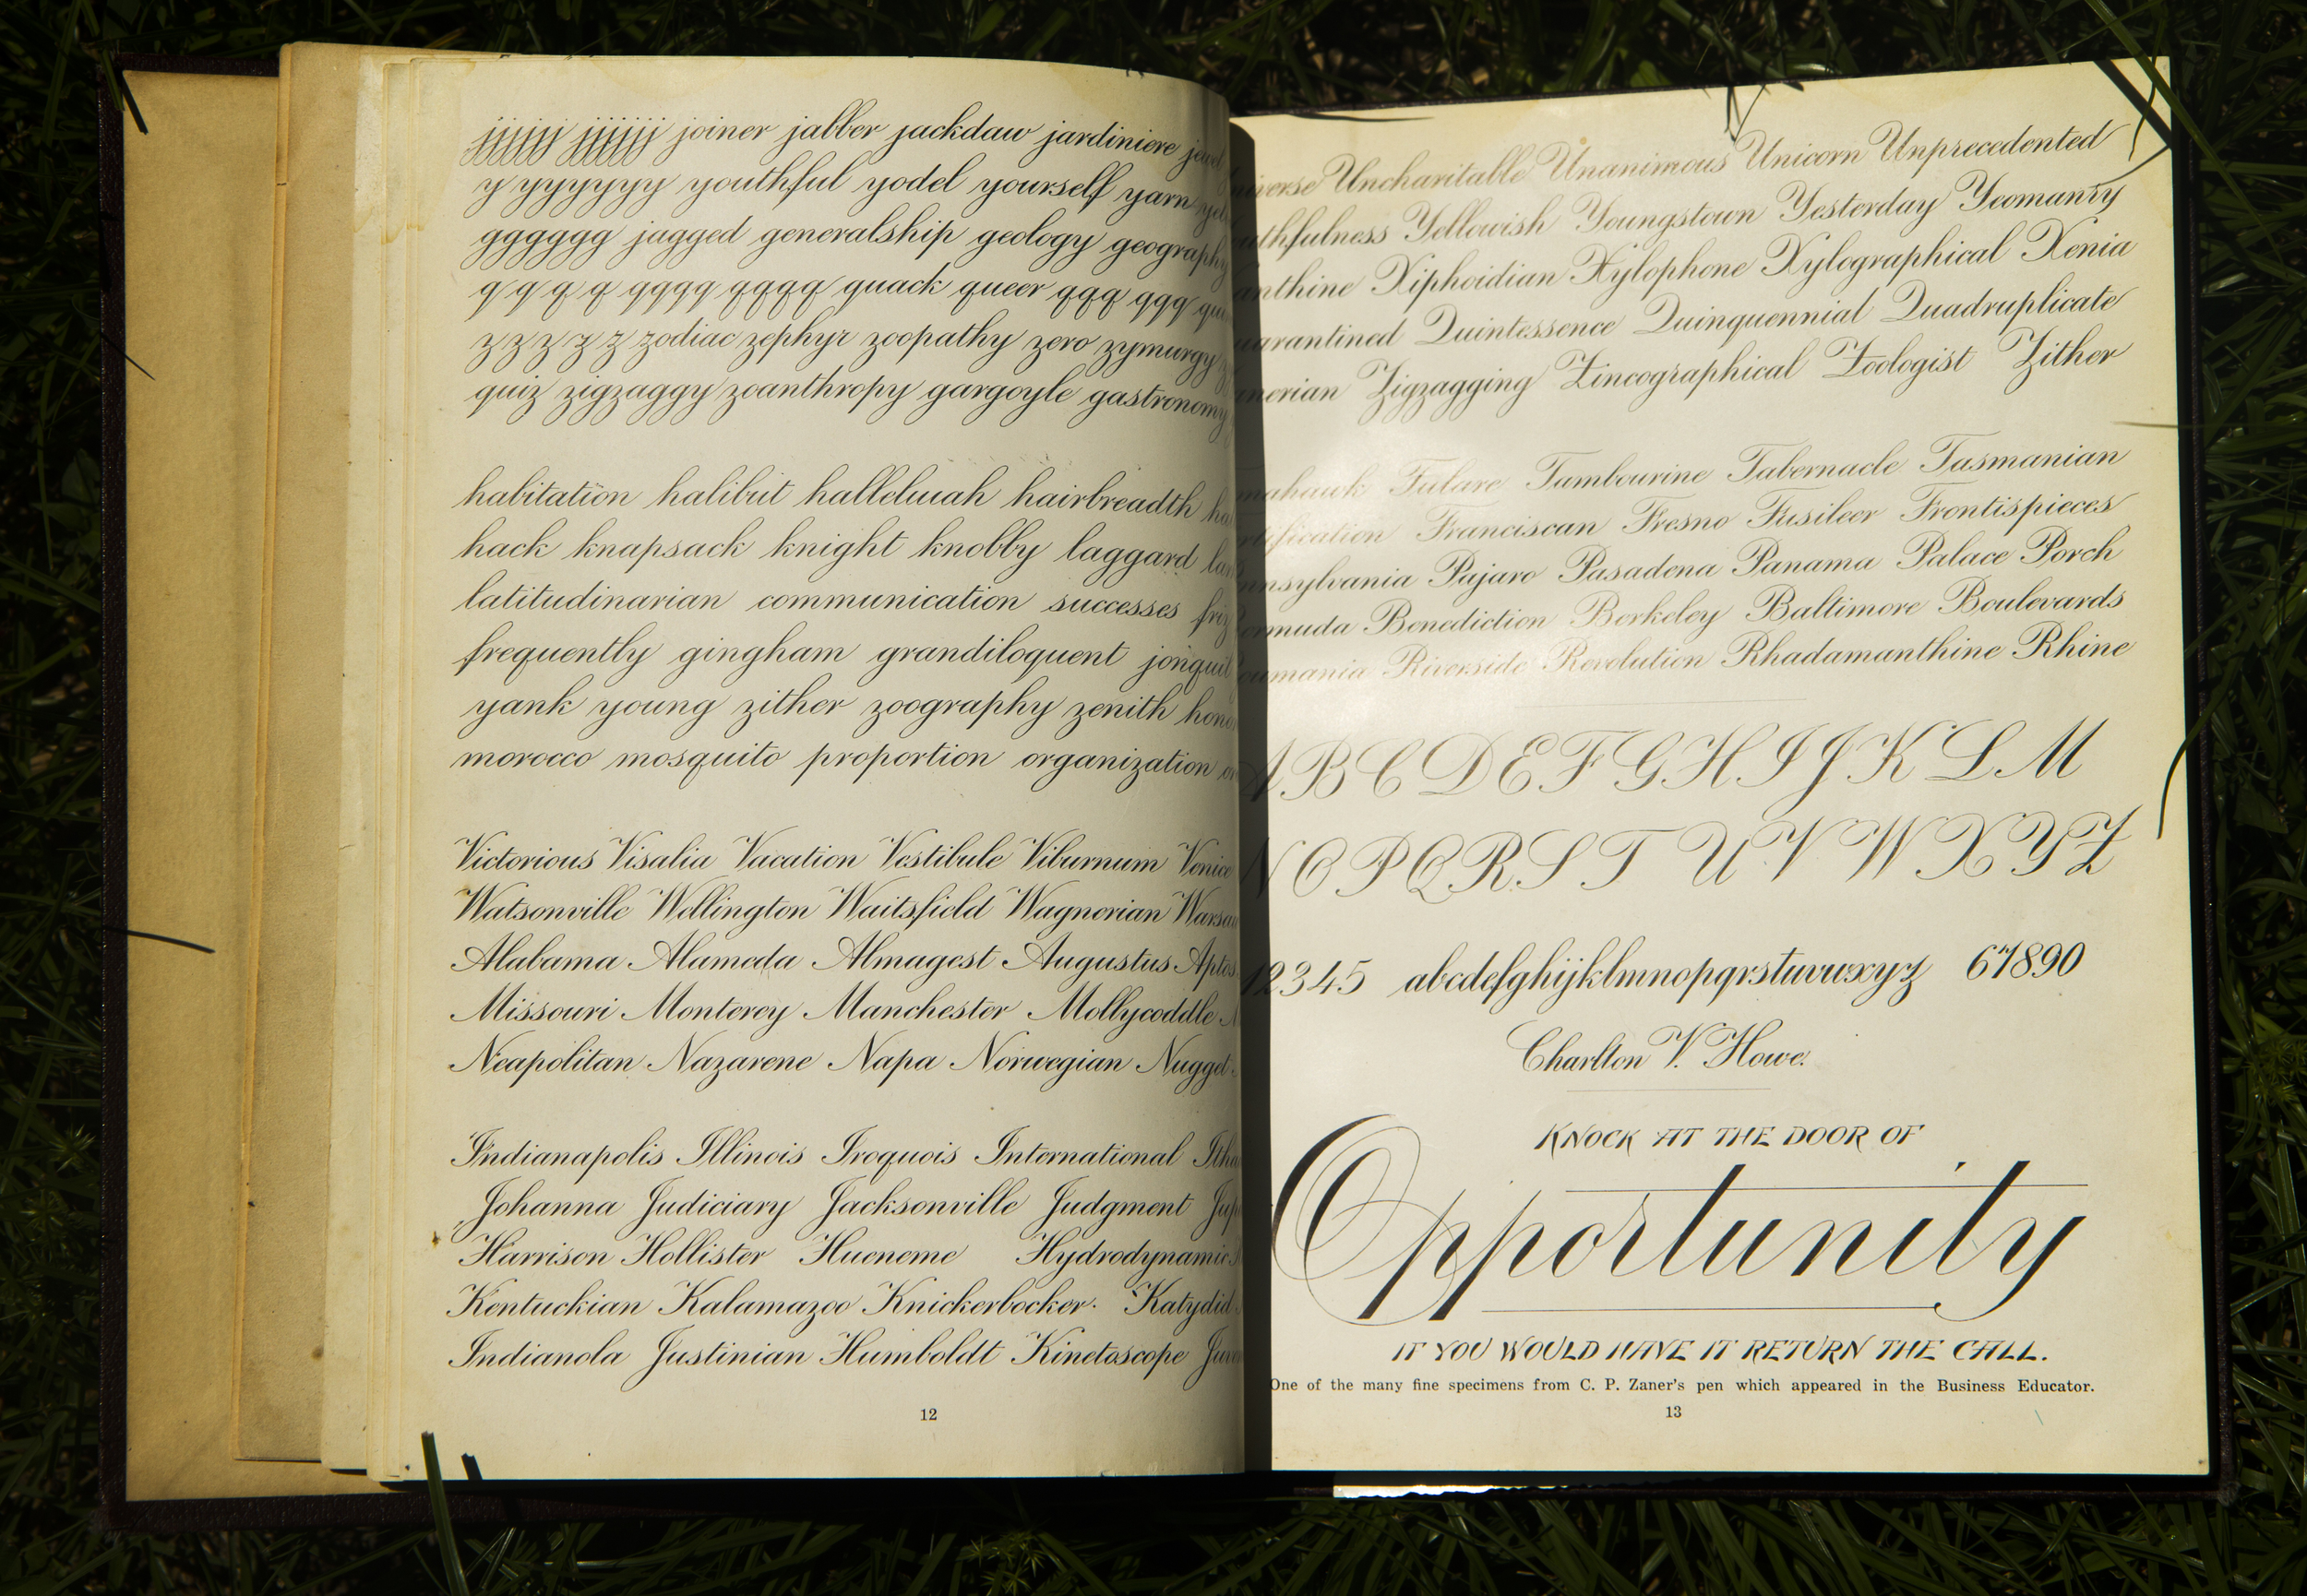 jjjjjj jjjjjj joiner jabber jackdaw jardiniere
y yyyyyy youthful yodel yourself yarn
gggggg jagged generalship geology geography
q q q q qqqq qqqq quack queer qqq qqq
z z z z z zodiac zephyr zoopathy zero zymurgy
quiz zigzaggy zoanthropy gargoyle gastronomy
habitation halibut halleluiah hairbreadth
hack knapsack knight knobby laggard
latitudinarian communication successes
frequently gingham grandiloquent jonquil
yank young zither zoography zenith
morocco mosquito proportion organization
Victorious Visalia Vacation Vestibule Viburnum Venice
Watsonville Wellington Waitsfield Wagnerian Warsaw
Alabama Alameda Almagest Augustus Aptos
Missouri Monterey Manchester Mollycoddle
Neapolitan Nazarene Napa Norwegian Nugget
Indianapolis Illinois Iroquois International
Johanna Judiciary Jacksonville Judgment
Harrison Hollister Hueneme Hydrodynamics
Kentuckian Kalamazoo Knickerbocker. Katydid
Indianola Justinian Humboldt Kinetoscope
12
Uncharitable Unanimous Unicorn Unprecedented
Yellowish Youngstown Yesterday Yeomanry
Xiphoidian Xylophone Xylographical Xenia
Quintessence Quinquennial Quadruplicate
Zigzagging Zincographical Zoologist Zither
Tulare Tambourine Tabernacle Tasmanian
Franciscan Fresno Fusileer Frontispieces
Pajaro Pasadena Panama Palace Porch
Benediction Berkeley Baltimore Boulevards
Riverside Revolution Rhadamanthine Rhine
A B C D E F G H I J K L M
N O P Q R S T U V W X Y Z
12345 abcdefghijklmnopqrstuvwxyz 67890
Charlton V. Howe.
KNOCK AT THE DOOR OF
Opportunity
IF YOU WOULD HAVE IT RETURN THE CALL.
One of the many fine specimens from C. P. Zaner's pen which appeared in the Business Educator.
13